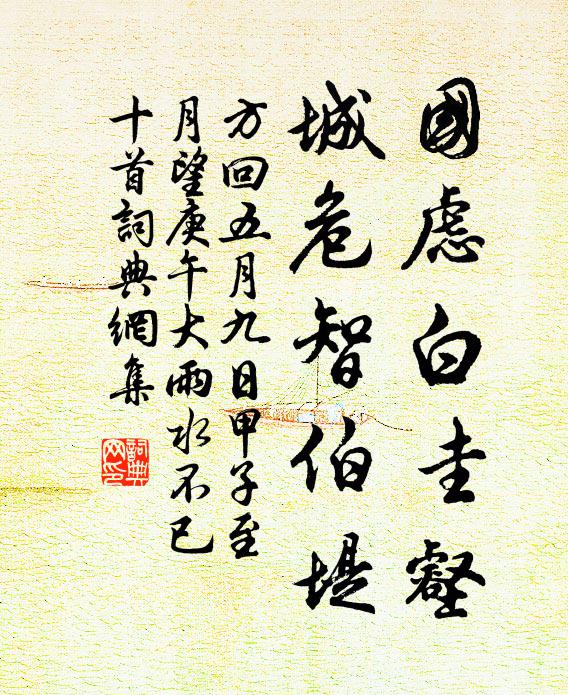 國慮白圭壑
城危智伯堤
方回五月九日甲子至
月望庚午大雨水不已
十首詞典網集
詞典網印